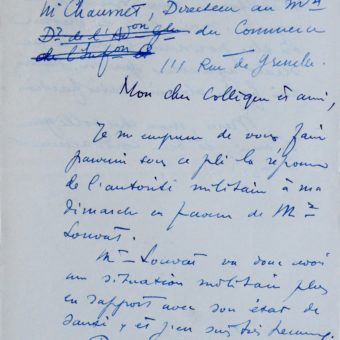 Mr Chaumet, Directeur au Mre
du Commerce
111 Rue de Grenelle.
Mon cher collègue et ami,
Je m'empresse de vous faire
parvenir sous ce pli la réponse
de l'autorité militaire à ma
démarche en faveur de Mr
Louvat.
Mr Louvat va donc avoir
une situation militaire plus
en rapport avec son état de
santé, et j'en suis très heureux.